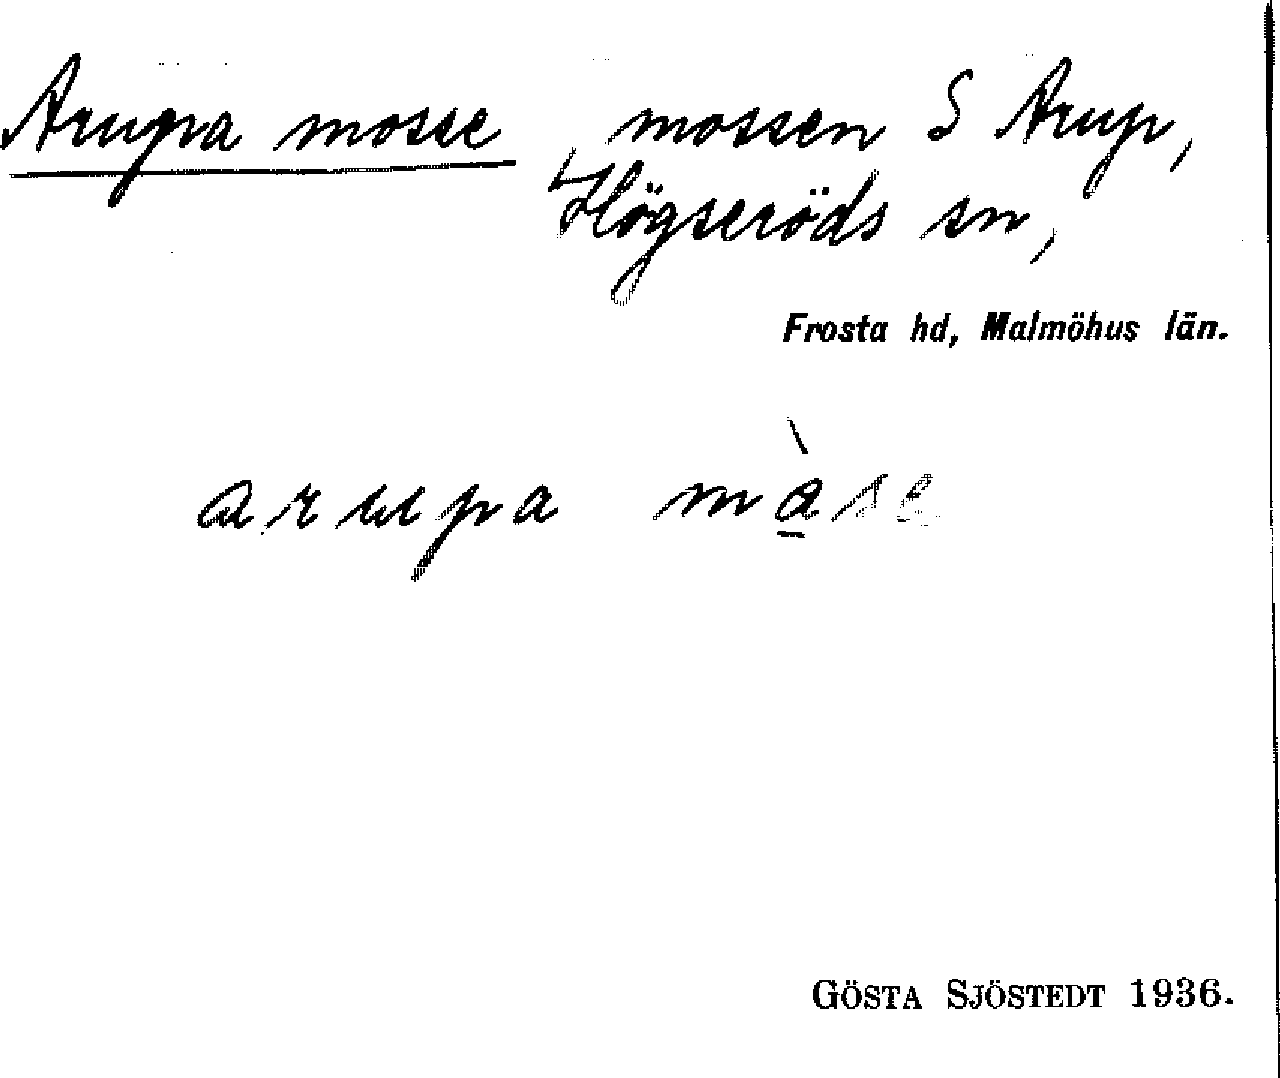 Arupa mosse mossen S Arup,
Högseröds sn,
Frosta hd, Malmöhus län.
arupa màse
GÖSTA SJÖSTEDT 1936.